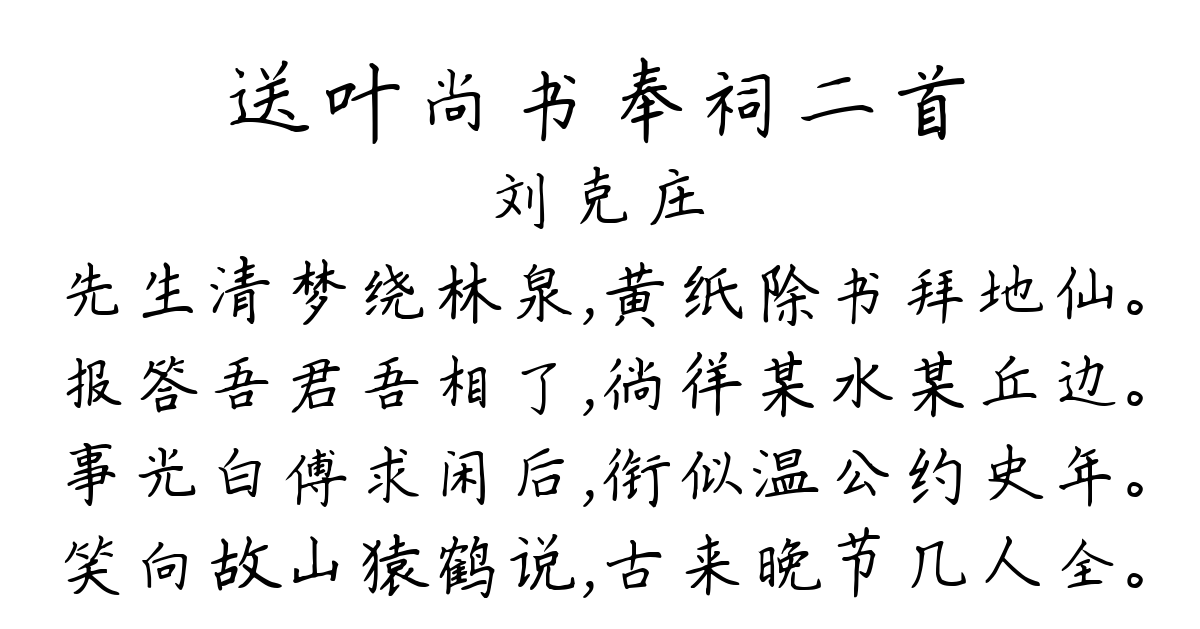 送叶尚书奉祠二首
刘克庄
先生清梦绕林泉,黄纸除书拜地仙。
报答吾君吾相了,徜徉某水某丘边。
事光白傅求闲后,衔似温公约史年。
笑向故山猿鹤说,古来晚节几人全。